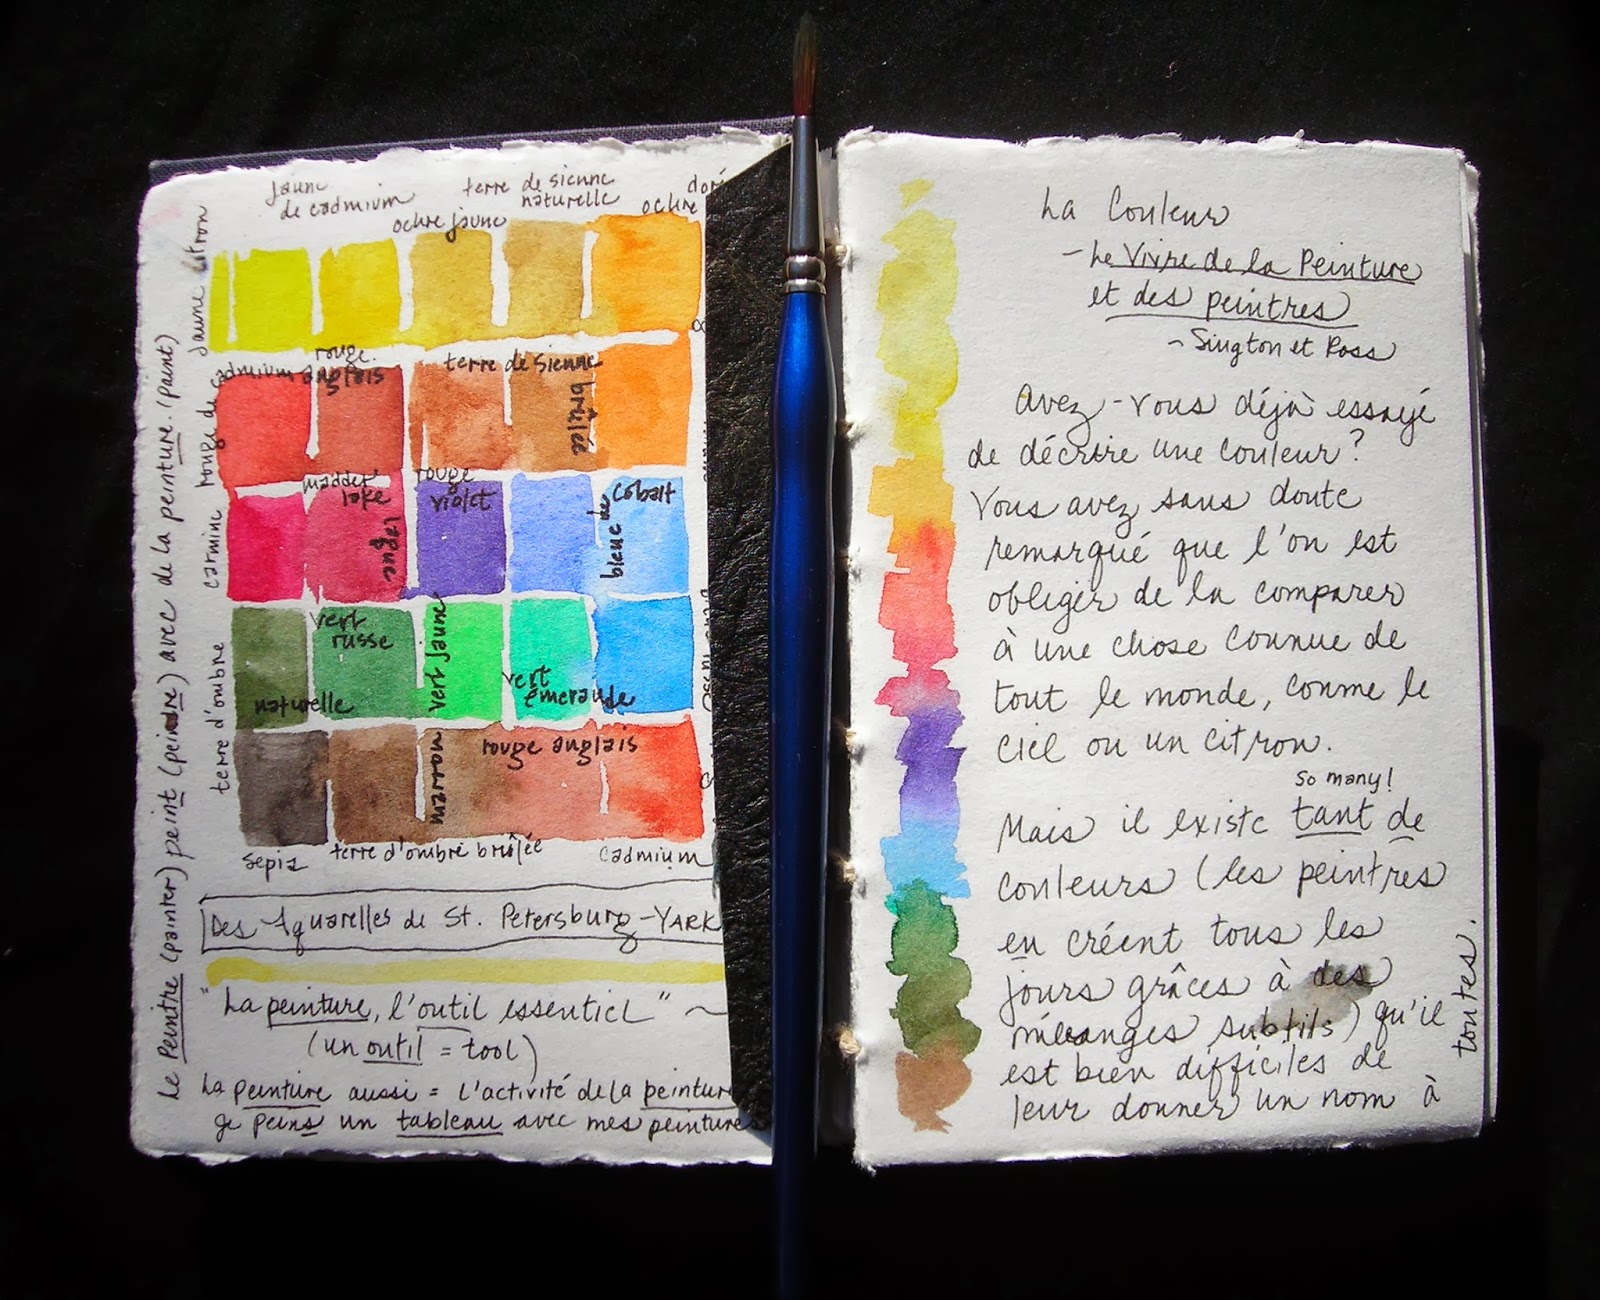 jaune
de cadmium
terre de sienne
naturelle
ochre jaune
doré
ochre
jaune citron
rouge de cadmium
rouge
anglais
terre de Sienne
brûlée
carmine
madder
lake
laque
rouge
violet
bleue de
cobalt
terre d'ombre
naturelle
vert
russe
vert jaune
vert
émeraude
marron
rouge anglais
sepia
terre d'ombre brûlée
cadmium
Des Aquarelles de St. Petersburg-YARK
"La peinture, l'outil essentiel" ~
(un outil = tool)
La peinture aussi = l'activité de la peinture
je peins un tableau avec mes peintures
Le Peintre (painter) peint (peindre) avec de la peinture. (paint)
La Couleur
- Le Vivre de la Peinture
et des peintres
- Sington et Ross
Avez-vous déjà essayé
de décrire une couleur?
Vous avez sans doute
remarqué que l'on est
obligér de la comparer
à une chose connue de
tout le monde, comme le
ciel ou un citron.
So many!
Mais il existe tant de
couleurs (les peintres
en créent tous les
jours grâces à des
mélanges subtils) qu'il
est bien difficiles de
leur donner un nom à
toutes.